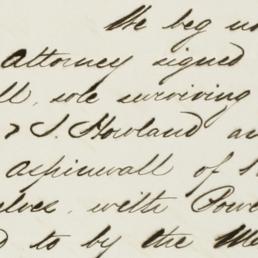 We beg
Attorney signed
sole surviving
& S. Howland
Aspinwall of
with Powe
to by the Me